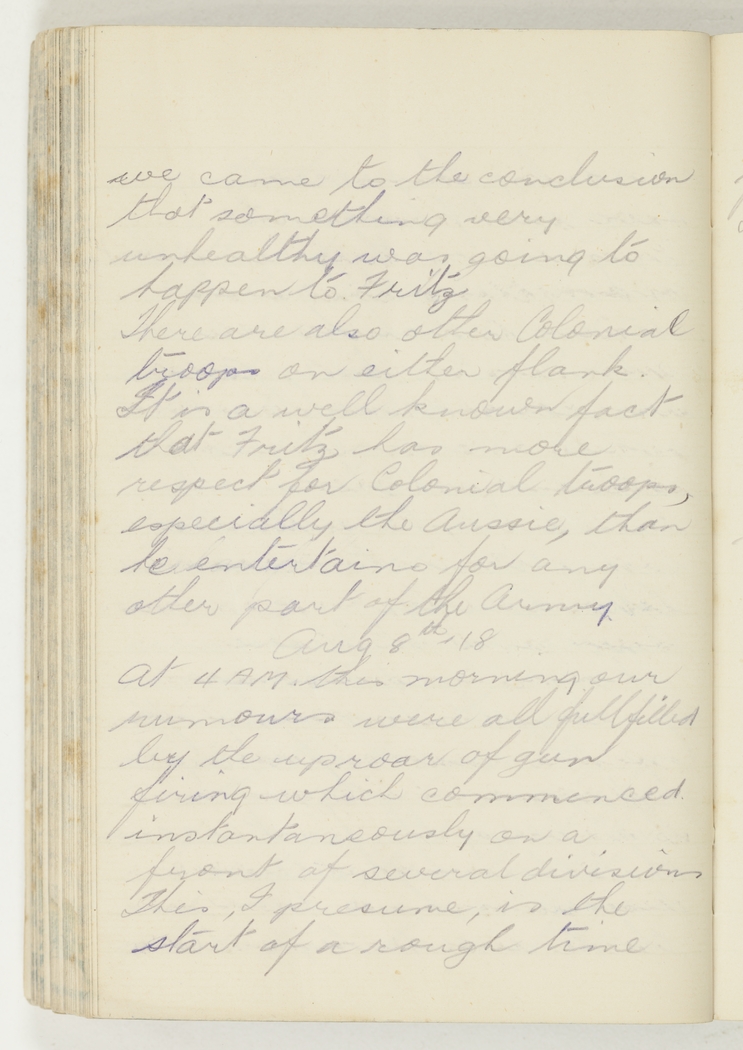 we came to the conclusion
that something very
unhealthy was going to
happen to Fritz
There are also other Colonial
troops on either flank.
It is a well known fact
that Fritz has more
respect for Colonial troops,
especially the Aussie, than
he entertains for any
other part of the Army.
Aug 8th-18
At 4 AM. this morning our
rumours were all fullfilled
by the uproar of gun
firing which commenced
instantaneously on a
front of several divisions
This, I presume, is the
start of a rough time